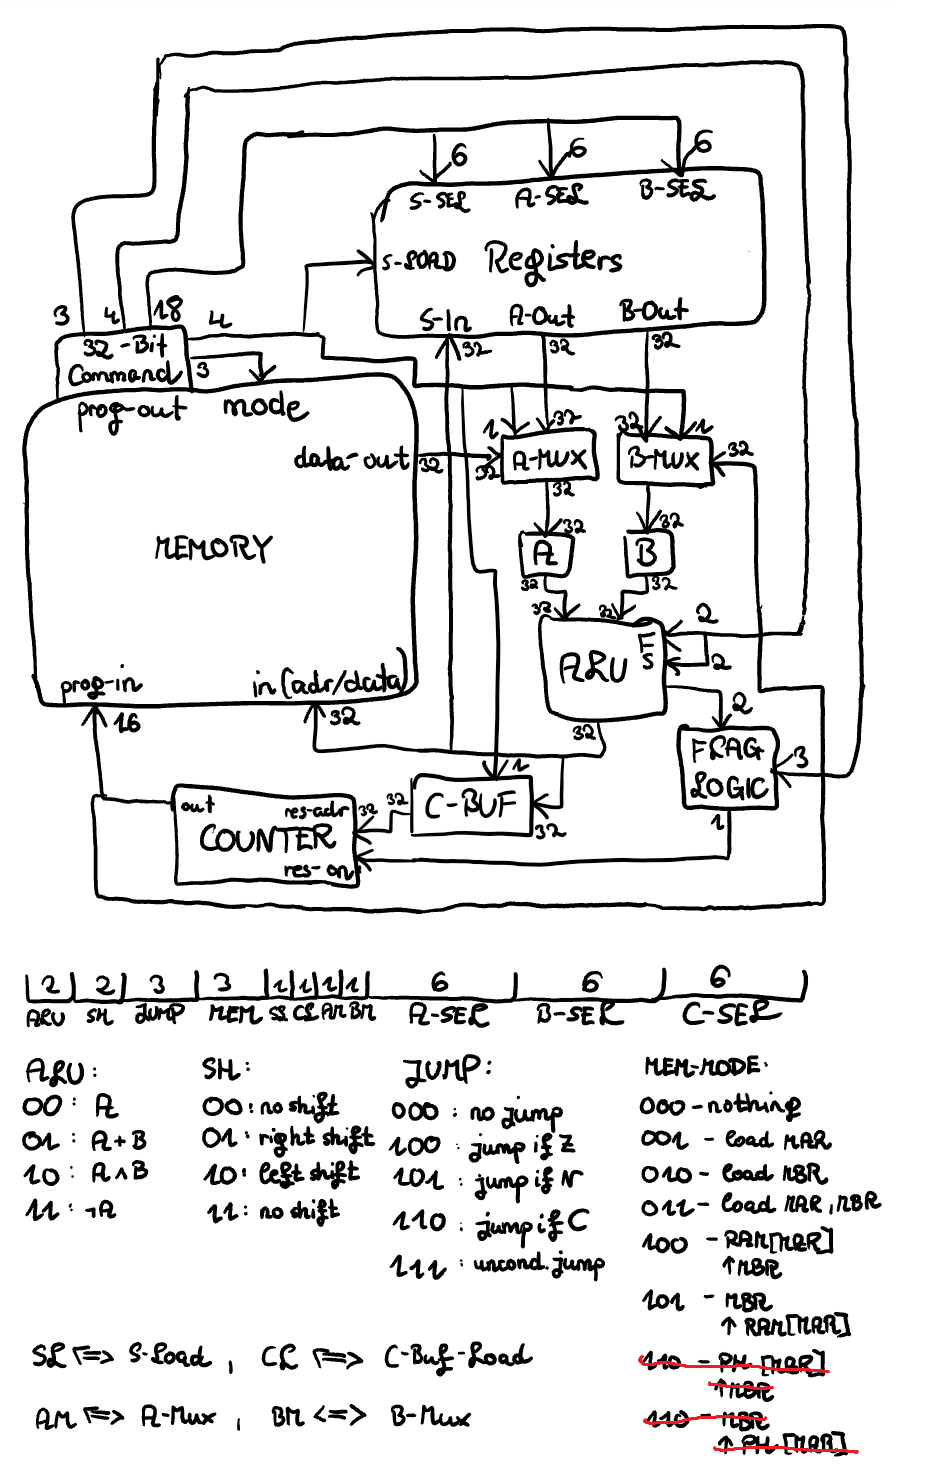 6 6 6
S-SEL A-SEL B-SEL
S-LOAD Registers
S-In A-Out B-Out
32 32 32
3 4 18 4
32-Bit
Command 3
prog-out mode
data-out 32
MEMORY
prog-in in (adr/data)
16 32
1 32 32 1
32 A-MUX B-MUX 32
32
32 32
A B
32 32
32 32 F 2
ALU S 2
32 2
FLAG
LOGIC 3
1
1
C-BUF
32
out res-adr 32 32
COUNTER
res-on
2 2 3 3 1 1 1 1 6 6 6
ALU SH JUMP MEM SL CL AM BM A-SEL B-SEL C-SEL
ALU:
00: A
01: A+B
10: A∧B
11: ¬A
SH:
00: no shift
01: right shift
10: left shift
11: no shift
JUMP:
000: no jump
100: jump if Z
101: jump if N
110: jump if C
111: uncond. jump
MEM-MODE:
000 - nothing
001 - load MAR
010 - load MBR
011 - load MAR, MBR
100 - RAM[MAR]
↑ MBR
101 - MBR
↑ RAM[MAR]
110 - PM [MAR]
↑ MBR
110 - MBR
↑ PM [MAR]
SL <=> S-Load, CL <=> C-Buf-Load
AM <=> A-Mux, BM <=> B-Mux